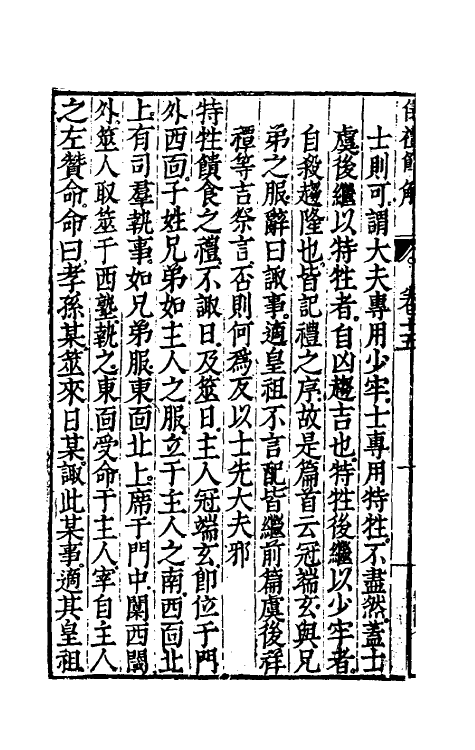 儀禮節解 卷十五
士則可謂大夫專用少牢士專用特牲不盡然蓋士
虞後繼以特牲者自凶趨吉也特牲後繼以少牢者
自殺趨隆也皆記禮之序故是篇首云冠端玄與兄
弟之服辭曰諏事適皇祖不言配皆繼前篇虞後祥
禫等吉祭言否則何爲反以士先大夫邪
特牲饋食之禮不諏日及筮日主人冠端玄卽位于門
外西面子姓兄弟如主人之服立于主人之南西面北
上有司羣執事如兄弟服東面北上席于門中闑西閾
外筮人取筮于西塾執之東面受命于主人宰自主人
之左贊命命曰孝孫某筮來日某諏此某事適其皇祖